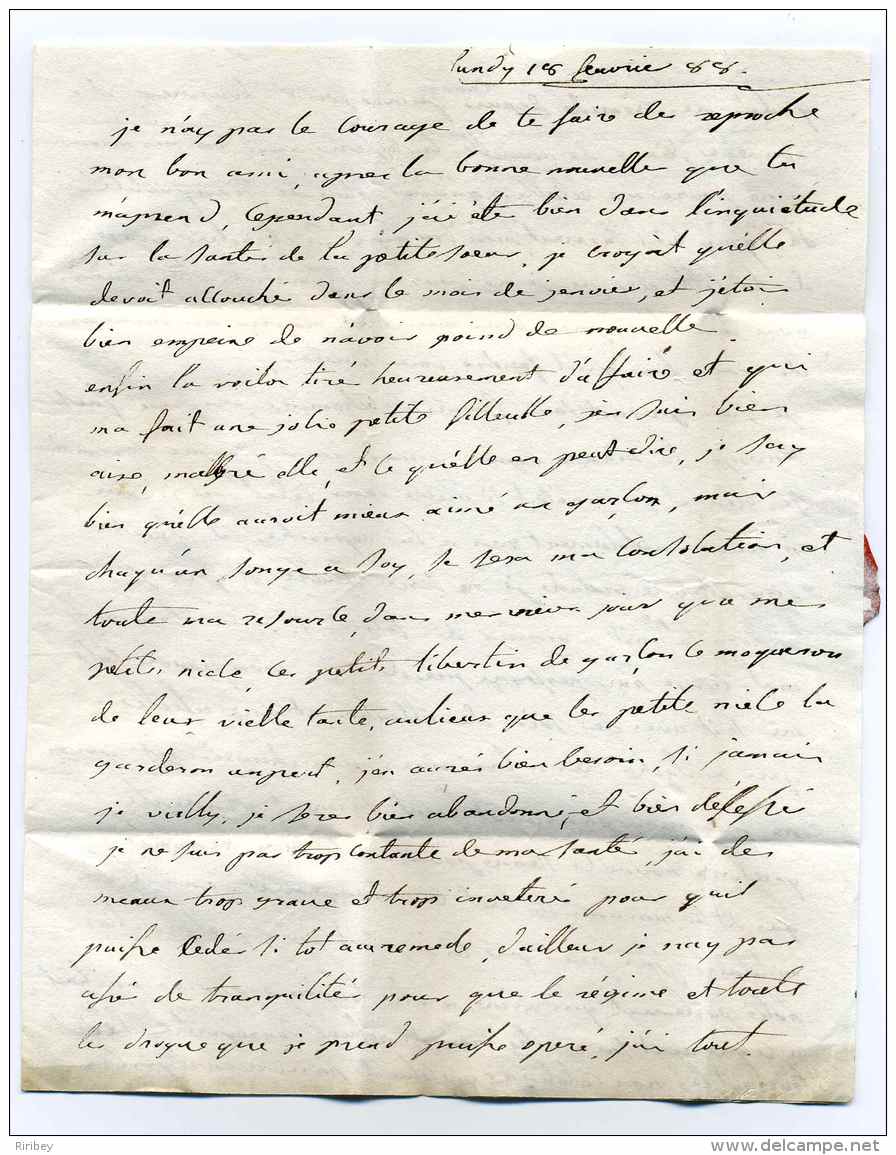 lundy 18 fevrie 88.
je n'ay pas le courage de te faire de reproche
mon bon ami, apres la bonne nouvelle que tu
m'aprend, cependant j'ai été bien dans l'inquiétude
sur la santé de la petite soeur, je croyoit qu'elle
devoit accouché dans le mois de janvier, et j'etois
bien empeine de n'avoir poind de nouvelle
enfin la voila tiré heureusement d'affaire et qui
ma fait une jolie petite filleulle, j'en suis bien
aise, malgré elle, et ce qu'elle en peut dire, je say
bien qu'elle auroit mieux aimé un garçon, mais
chaqu'un songe a soy, se sera ma consolation, et
toute ma resource, dans mes vieux jour que mes
petits niece, ces petits libertin de garçon ce moqueron
de leur vielle tante, aulieux que les petite niece la
garderon unpeut, j'en auré bien besoin, si jamais
je vielly, je serez bien abandonné, et bien délessé
je ne suis pas trop contante de ma santé, j'ai des
meaux trop grave et trop inveteré pour quil
puisse cedér si tot au remede, d'ailleur je n'ay pas
assé de tranquilités pour que le régime et toute
les drogue que je prend puisse operé, j'ai tout.
Riribey